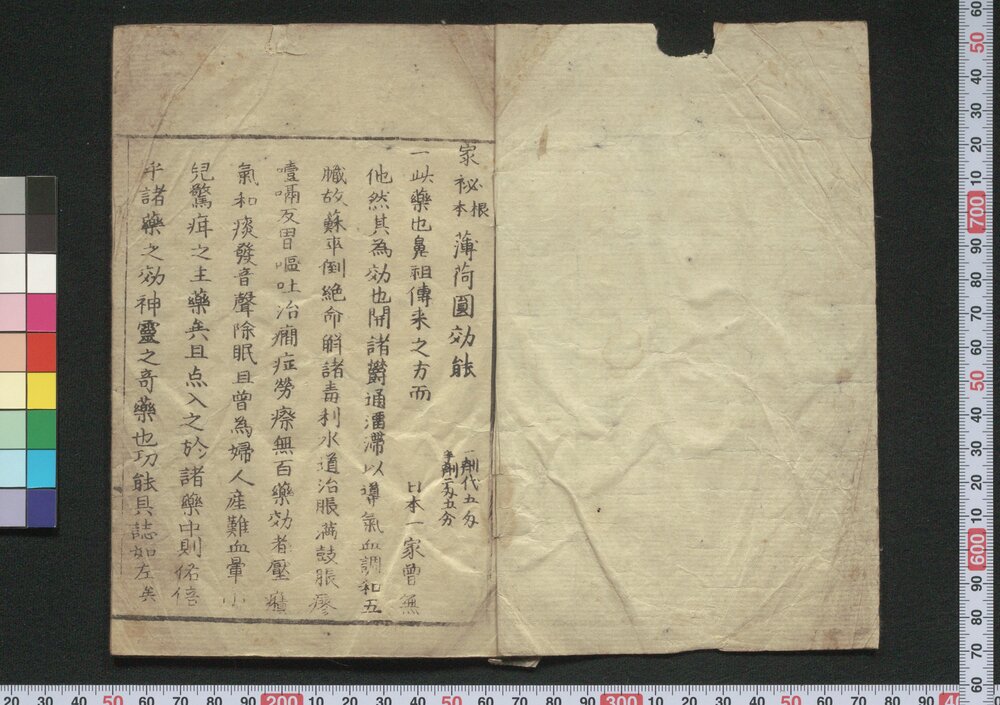 家祕 根本 薄荷圓効能 一剤代五匁 半剤二匁五分
一此藥也鼻祖傳来之方而 日本一家曾無
他然其為効也開諸鬱通澑滞以導氣血調和五
臓故蘇卒倒絶命解諸毒利水道治脹満鼓脹瘮
噎嗝反胃嘔吐治癇症勞瘵無百藥効者壓癪
氣和痰發音聲除眠且曾為婦人産難血暈小
兒驚疳之主藥矣且点入之於諸藥中則佑倍
乎諸藥之効神靈之奇藥也功能具誌如左矣